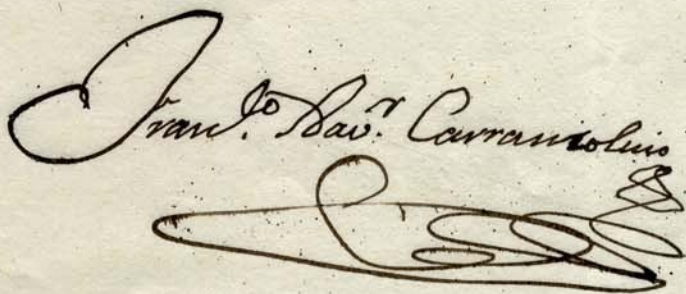 Fran.co Xav.r Carramolino